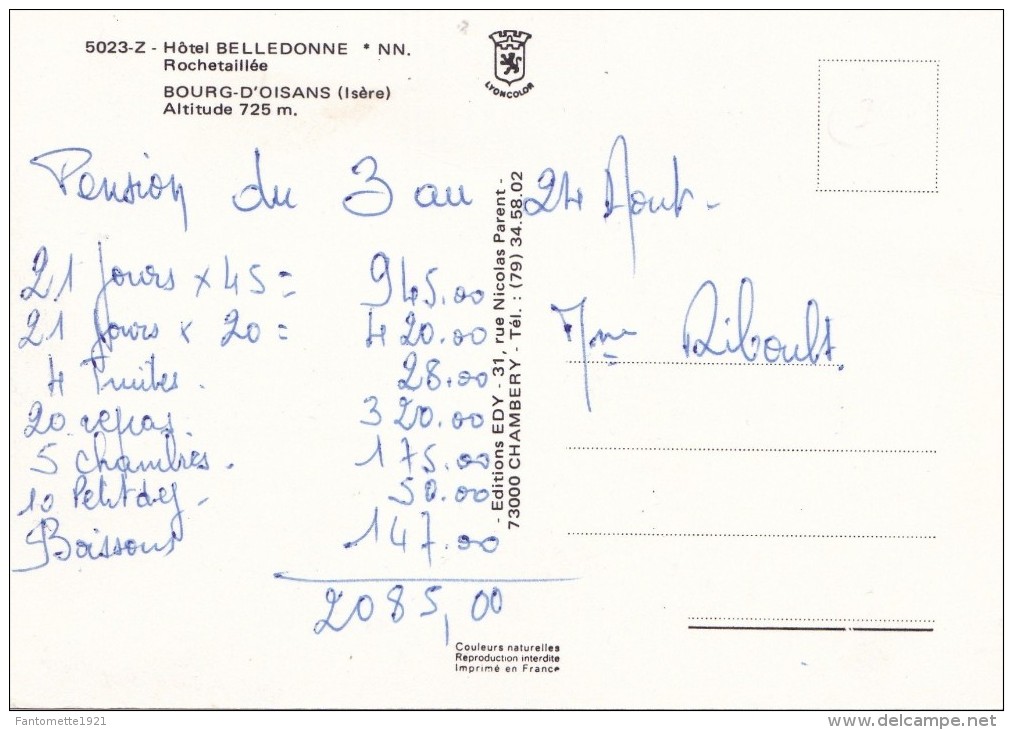 5023-Z - Hôtel BELLEDONNE * NN.
Rochetaillée
BOURG-D'OISANS (Isère)
Altitude 725 m.
LYONCOLOR
Pension du 3 au 24 Aout -
21 jours x 45 = 945.00
21 jours x 20 = 420.00
4 Truites. 28.00
20 repas. 320.00
5 chambres. 175.00
10 Petit dej - 50.00
Boissons 147.00
2085,00
Mme Riboult.
- Editions EDY - 31, rue Nicolas Parent -
73000 CHAMBERY - Tél. : (79) 34.58.02
Couleurs naturelles
Reproduction interdite
Imprimé en France
Fantomette1921
www.delcampe.net